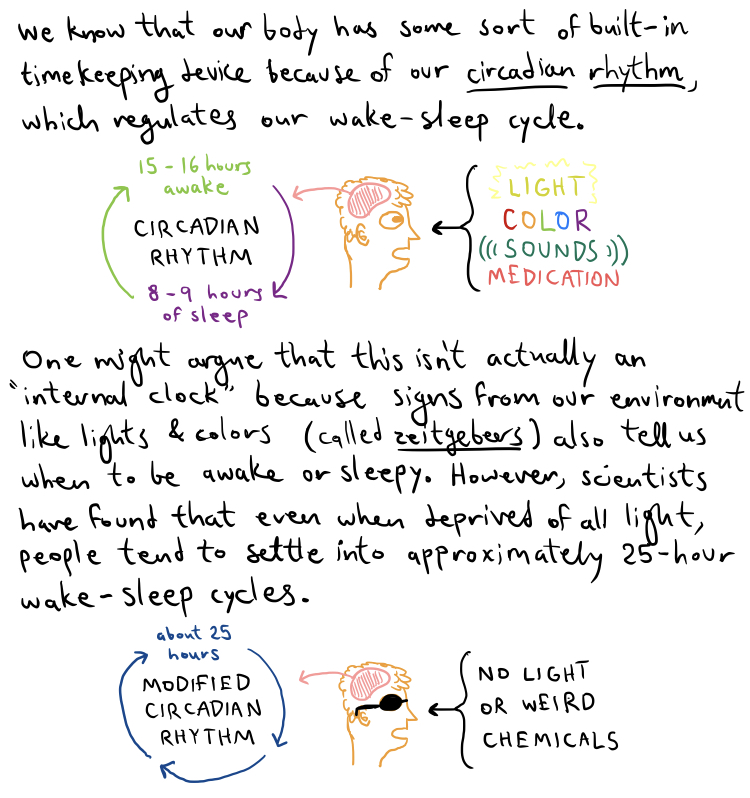 we know that our body has some sort of built-in
timekeeping device because of our circadian rhythm,
which regulates our wake-sleep cycle.
15-16 hours
awake
CIRCADIAN
RHYTHM
8-9 hours
of sleep
LIGHT
COLOR
(((SOUNDS)))
MEDICATION
One might argue that this isn't actually an
"internal clock" because signs from our environmnt
like lights & colors (called zeitgebers) also tell us
when to be awake or sleepy. However, scientists
have found that even when deprived of all light,
people tend to settle into approximately 25-hour
wake-sleep cycles.
about 25
hours
MODIFIED
CIRCADIAN
RHYTHM
NO LIGHT
OR WEIRD
CHEMICALS